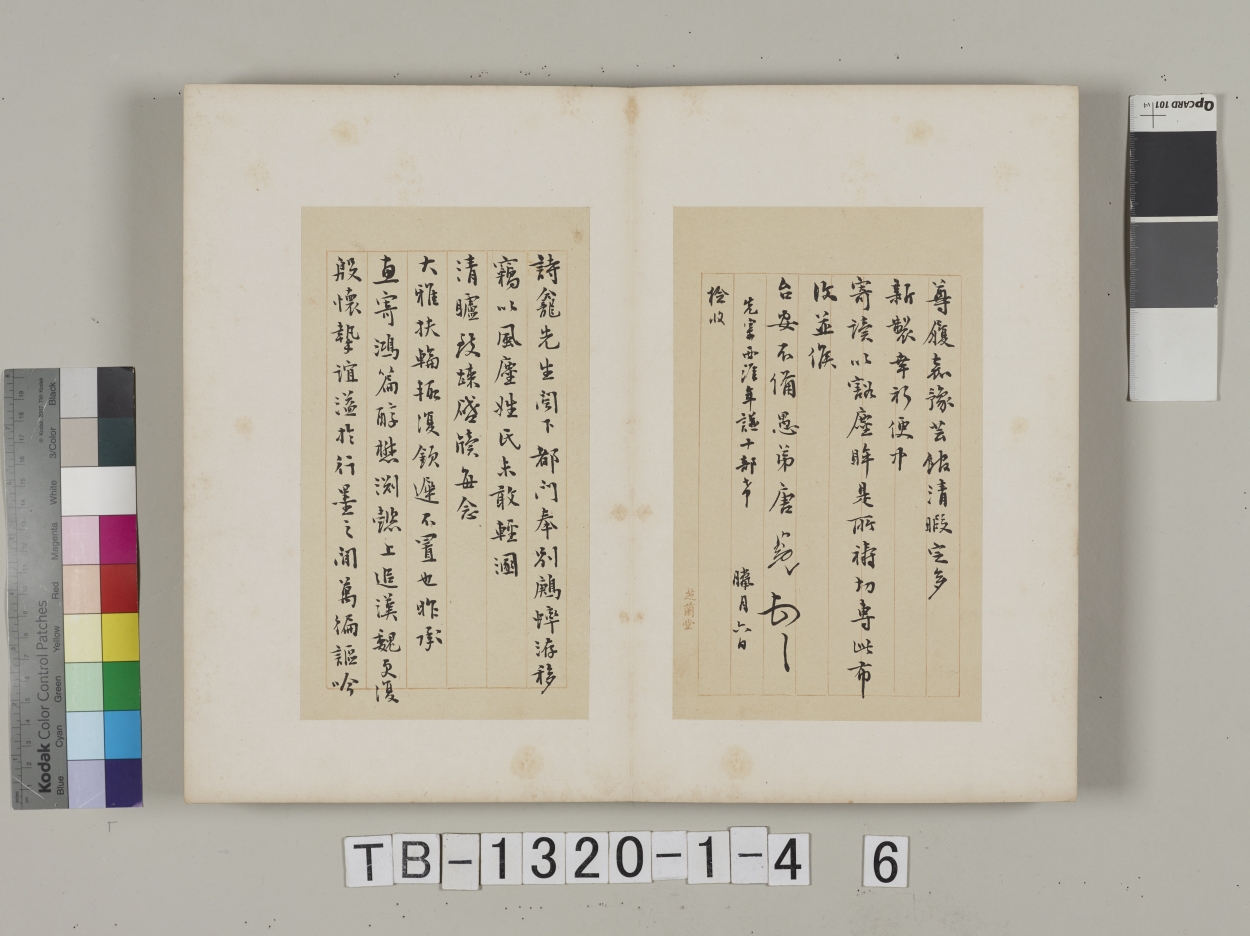 尊履嘉豫芸館清暇定多
新製幸祈便中
寄讀以豁塵眸是所禱切專此布
改並候
台安不備愚弟唐
臘月六日
先宗西淮年譜十部希
檢收
芝蘭堂
詩龕先生閣下都門奉別鷉蟀游移
竊以風塵姓氏未敢輕溷
清矑致疎啓牘每念
大雅扶輪輒復欽遲不置也昨承
惠寄鴻篇醇懋淵懿上追漢魏更復
殷懷摯誼溢於行墨之間萬徧謳吟
QpCARD 101
Kodak Color Control Patches
Blue Cyan Green Yellow Red Magenta White 3/Color Black
TB-1320-1-4 6